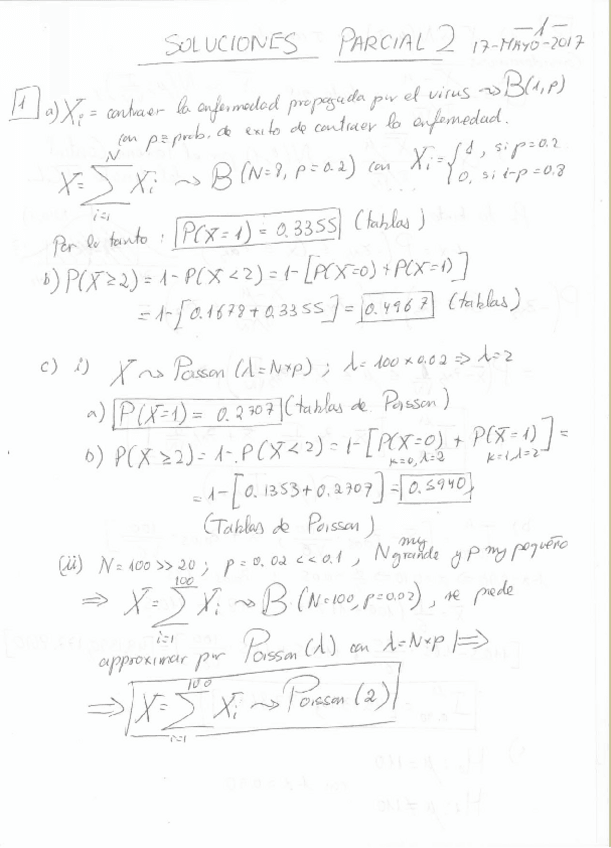 -1-
SOLUCIONES PARCIAL 2 17-MAYO-2017
1 a) Xi = contraer la enfermedad propagada por el virus ~> B(1,p)
con p≡prob. de exito de contraer la enfermedad.
X = ∑_{i=1}^{N} Xi ~> B(N=8, p=0.2) con Xi = {1, si p=0.2
0, si 1-p=0.8
Por lo tanto: P(X=1) = 0.3355 (tablas)
b) P(X≥2) = 1-P(X<2) = 1-[P(X=0)+P(X=1)]
= 1-[0.1678+0.3355] = 0.4967 (tablas)
c) i) X ~> Poisson (λ=N×p); λ=100×0.02 ⇒ λ=2
a) P(X=1) = 0.2707 (tablas de Poisson)
b) P(X≥2) = 1-P(X<2) = 1-[P(X=0) + P(X=1)] =
k=0, λ=2 k=1, λ=2
= 1-[0.1353+0.2707] = 0.5940
(Tablas de Poisson)
(ii) N=100>>20; p=0.02<<0.1, N muy grande y p muy pequeño
⇒ X = ∑_{i=1}^{100} Xi ~> B(N=100, p=0.02), se puede
approximar por Poisson (λ) con λ=N×p ⇒
⇒ X = ∑_{i=1}^{100} Xi ~> Poisson (2)